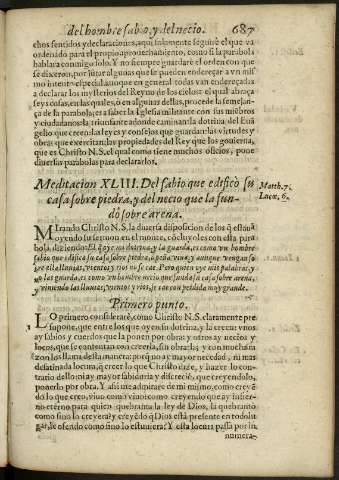 del hombre sabio, y del necio. 687
chos sentidos y declaraciones, aqui solamente seguirè el que va
ordenado para el propio aprouechamiento, como si la parabola
hablara conmigo solo. Y no siempre guardarè el orden con que
se dixeron, por jũtar algunas que se pueden endereçar a vn mis
mo intento: especialmẽte aunque en general todas van endereçadas
a declarar los mysterios del Reyno de los cielos: el qual abraça
seys cosas, en las quales, ò en algunas dellas, procede la semejan-
ça de la parabola, es a saber la Iglesia militante con sus miẽbros
y ciudadanos: la triunfante adonde caminan: la dotrina del Euã
gelio que creen: las leyes y consejos que guardan: las virtudes y
obras que exercitan: las propiedades del Rey que los gouierna,
que es Christo N.S. el qual como tiene muchos oficios, pone
diuersas parabolas para declararlos.
Meditacion XLIII. Del sabio que edificò su
casa sobre piedra, y del necio que la fun-
dò sobre arena.
Matth. 7.
Lucæ, 6.
MIrando Christo N.S. la diuersa disposicion de los q̃ estauã
oyendo su sermon en el monte, cõcluyoles con esta para
bola, diziendo: El q̃ oye mi dotrina, y la guarda, es como vn hombre
sabio que edifica su casa sobre piedra, ò peña viua, y aunque vengan so
bre ella lluuias, vientos y rios no se cae. Pero quien oye mis palabras, y
no las guarda, es como vn hombre necio que funda su casa sobre arena,
y viniendo las lluuias, vientos, y rios, se cae con perdida muy grande.
Primero punto.
LO primero considerarè, como Christo N.S. claramente pre-
supone, que entre los que oyen su dotrina, y la creen: vnos
ay sabios y cuerdos que la ponen por obra: y otros ay necios y
locos, que se contentan con creerla, sin obrarla: y con mucha ra
zon los llama desta manera: porq̃ no ay mayor necedad, ni mas
desatinada locura, q̃ creer lo que Christo dize, y hazer lo con-
trario dello: ni ay mayor sabiduria y discreciõ, que creyendolo,
ponerlo por obra. Y assi me admirarè de mi mismo, como creyẽ
do lo que creo, viuo como viuo: como creyẽdo que ay infier-
no eterno para quien quebranta la ley de Dios, la quebrantò
como sino lo creyera? y creyẽdo q̃ Dios està presente en todo lu
gar, le ofendo como sino lo estuuiera? Y esta locura passa por in
numera-